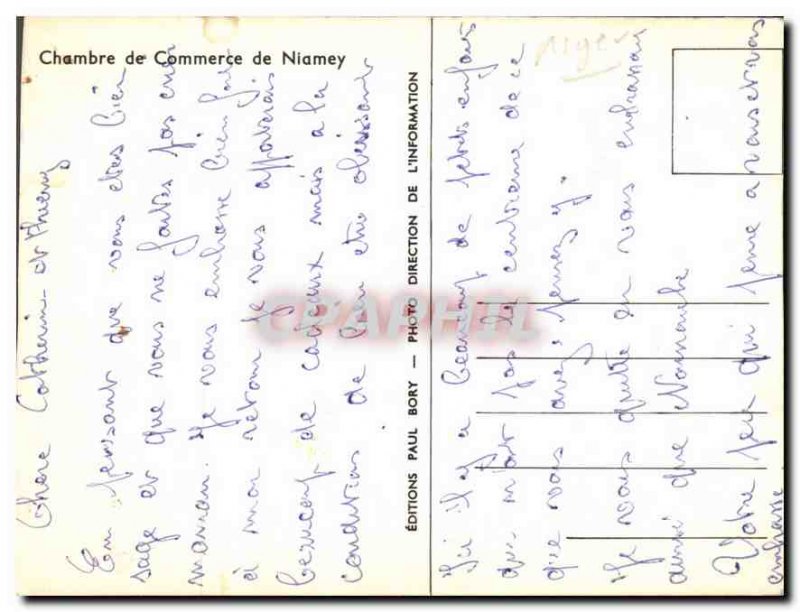 Chambre de Commerce de Niamey
Niger
ÉDITIONS PAUL BORY — PHOTO DIRECTION DE L'INFORMATION
CPAPHIL
Chere Catherine et Thierry
En pensant que vous êtes bien
sage et que vous ne faites pas
maman. Je vous embrasse bien fort
à mon retour je vous apporterais
beaucoup de cadeaux mais a la
condition de bien etre obeissants
Ici il y a beaucoup de petits enfants
qui n'ont pas le centieme de ce
que vous avez pensez y.
Je vous quitte en vous embrassant
ainsi que
Votre qui pense a vous et vous
embrasse